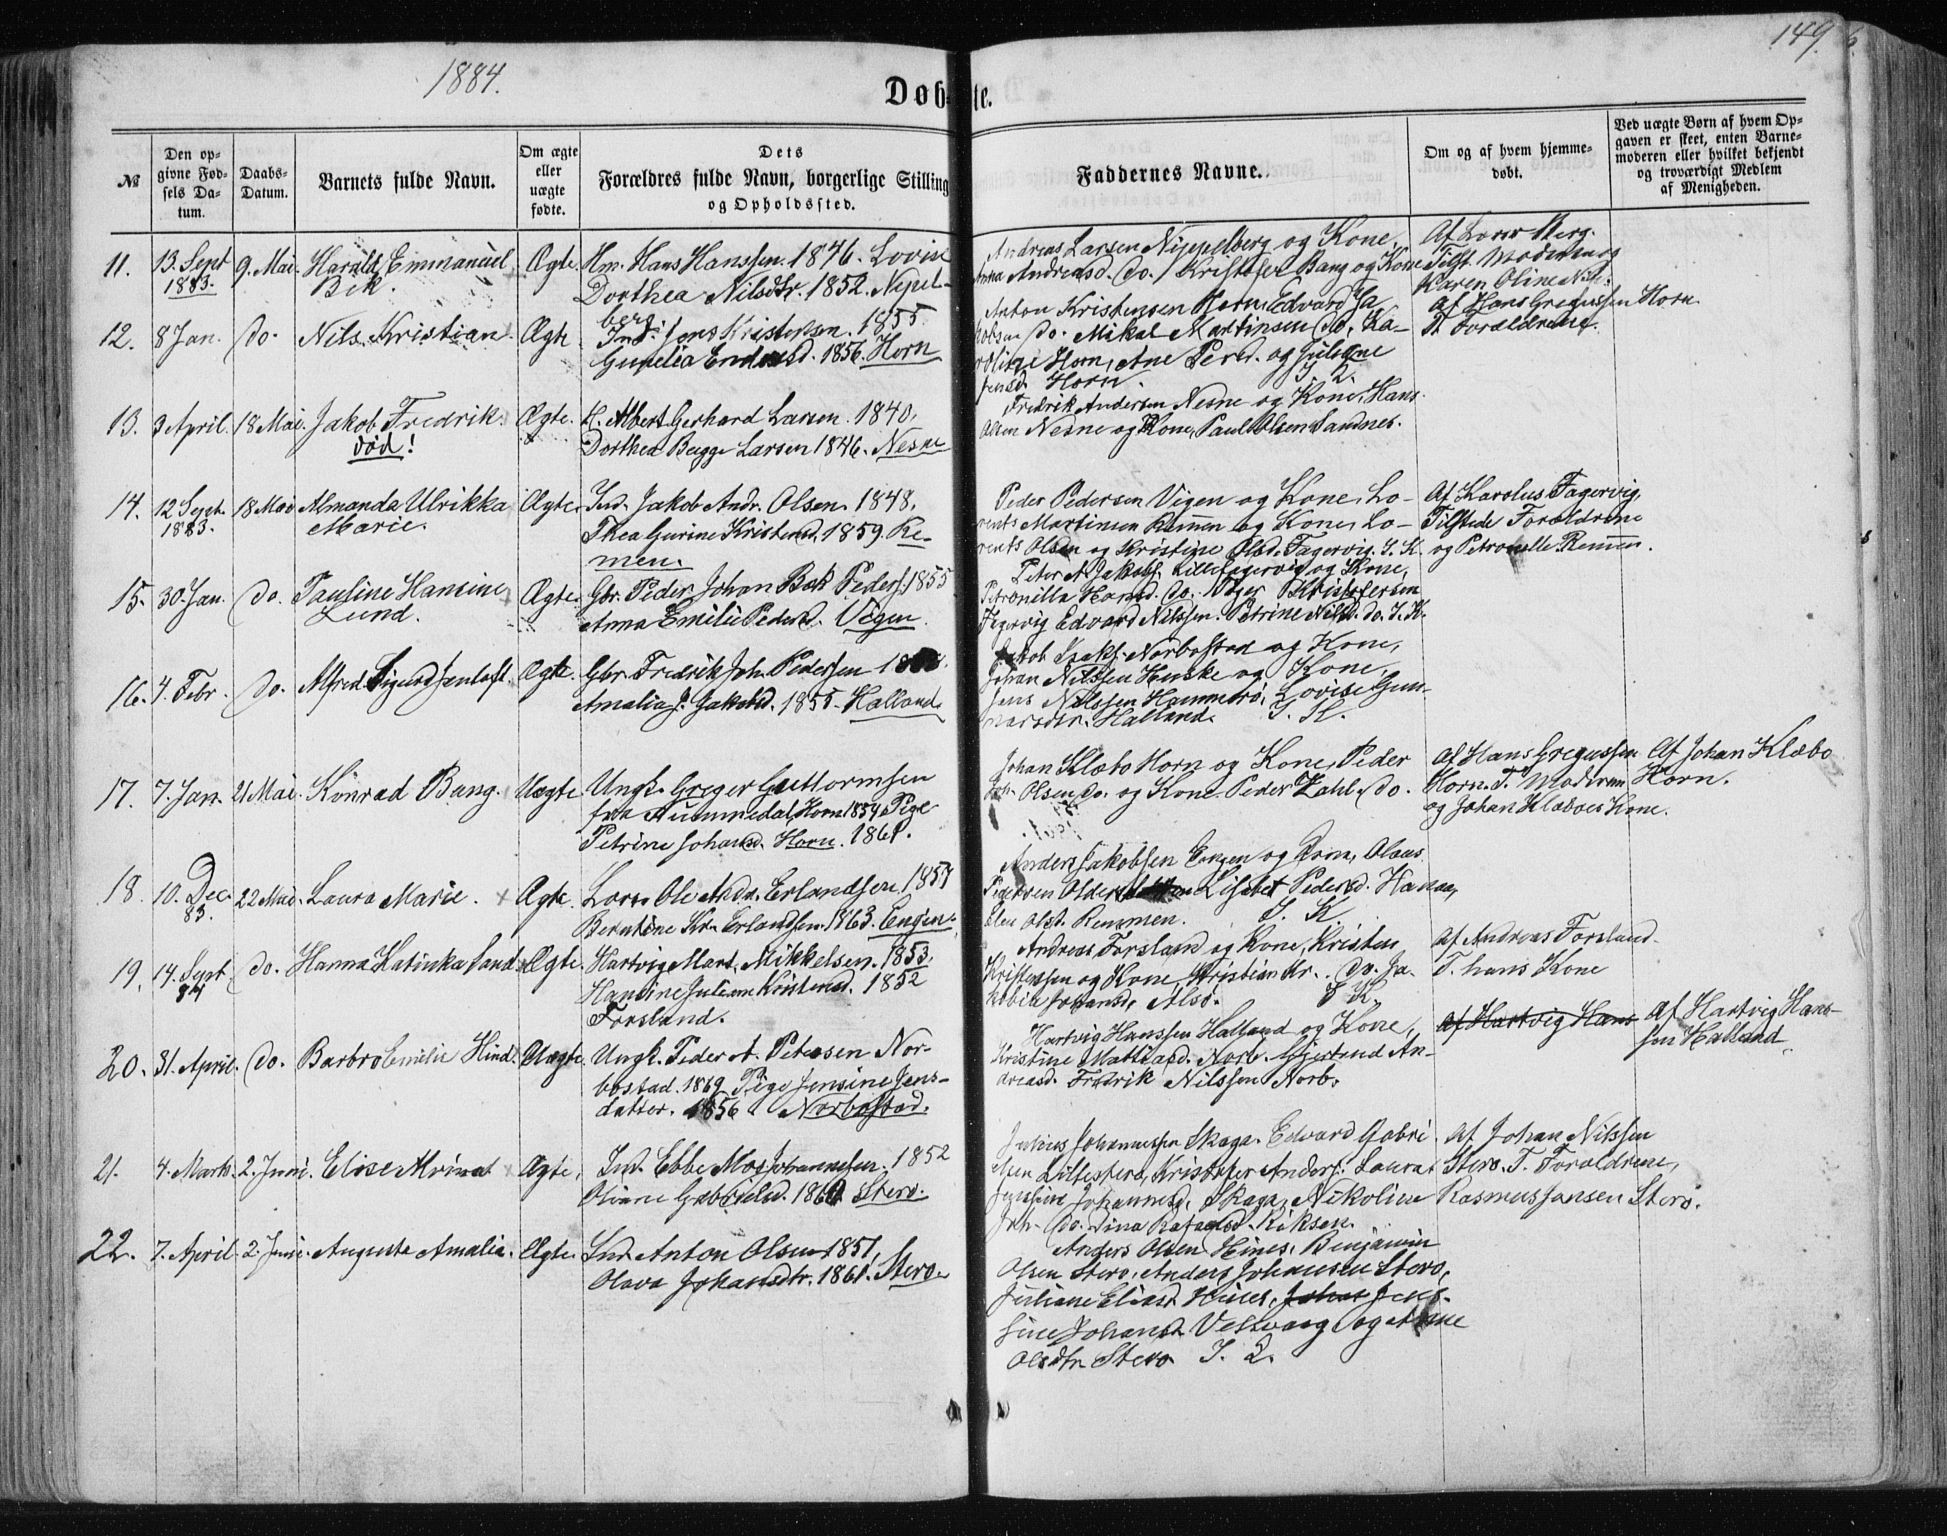 1884.
149.
Døbte.
№
Den op-
givne Fød-
sels Da-
tum.
Daabs-
Datum.
Barnets fulde Navn.
Om ægte
eller
uægte
fødte.
Dets
Forældres fulde Navn, borgerlige Stilling
og Opholdssted.
Faddernes Navne.
Om og af hvem hjemme-
døbt.
Ved uægte Børn af hvem Op-
gaven er skeet, enten Barne-
moderen eller hvilket bekjendt
og troværdigt Medlem
af Menigheden.
11. 13. Sept 1883. 9. Mai. Harald Emmanuel
Bek.
Ægte. Hm. Hans Hanssen. 1846. Lovise
Dorthea Nilsdtr. 1852. Nepel-
berg.
Andreas Larsen Nippelberg og Kone,
Anna Andreasd. do. / Kristofer Bang og Kone
Tilst. Moderen og
Karen Oline
12. 8 Jan. do. Nils Kristian. Ægte. Ind. Jens Kristensen. 1855.
1856. Horn
Anton Kristensen Horn, Edvard Ja-
kobsen do. Mikal Martinsen do. Ka-
roline Horn, Ane Persd. og
Jensd. Horn.
Af Hans Gregussen Horn.
T. Forældrene.
13. 3 April. 18 Mai. Jakob Fredrik.
død!
Ægte. Albert Gerhard Larsen. 1840.
Dorthea Bugge Larsen 1846. Nesne
Fredrik Andersen Nesne og Kone, Hans
Olsen Nesne og Kone, Paul Olsen Sandnes.
14. 12 Sept. 1883. 18 Mai Almanda Ulrikka
Marie.
Ægte. Ind. Jakob Andr. Olsen. 1848.
Thea Gurine Kristensd. 1859. Re-
men.
Peder Pedersen Vigen og Kone, Lo-
rents Martinsen Remmen og Kone, Lo-
rents Olsen og Kristine Olsd. Fagervig. I. K.
Af Karolus Fagervig,
Tilstede Forældrene
og Petronelle Remmen.
15. 30. Jan. do. Pauline Hansine
Lund.
Ægte. Gbr. Peder Johan Bak Peders. 1855
Anna Emilie Pedersd. Vigen.
Peter A. Jakobs. Lillefagervig og Kone,
Petronilla Hansd. do. Kristofersen
Fagervig Edvard Nilssen. Petrine Nilsd. do. I. K.
16. 4. Febr. do. Alfred Sigurd Ægte. Gbr. Fredrik Joh. Pedersen
Amalia J. Jakobsd. 1855. Halland.
Jakob Isaks. Norbostad og Kone,
Johan Nilssen Huske og Kone,
Jens Nilssen Hammerø, Lovise Gun-
narsdtr. Halland. I. K.
17. 7. Jan. 21 Mai. Konrad Bang. Uægte Ungk. Greger Guttormsen
fra Nummedal, Horn 1854 Pige
Petrine Johansd. Horn. 1861.
Johan Klæbo Horn og Kone, Peder
Olsen do. og Kone Peder Zahl. do.
Af Hans Gregussen
Horn. T. Moderen
og Johan Klæboes Kone.
Af Johan Klæbo
Horn.
18. 10. Dec. 83. 22 Mai. Laura Marie. Ægte. Ole Andr. Erlandsen, 1857
Berntine Kr. Erlandsen. 1863. Engen.
Anders Jakobsen Engen og Kone, Olaus
Pedersen Lisebet Pedersd. Hanna,
Elen Olsd. Remmen. I. K.
19. 14. Sept 84 do. Hanna Katinka Ægte. Hartvig Mart. Mikkelsen. 1853.
Hansine Juliane Kristensd. 1852
Forsland.
Andreas Forsland og Kone, Kristen
Kristensen og Kone, Kristian Kr. do. Ja-
kobine Johansd. Alsø. I. K.
Af Andreas Forsland.
T. hans Kone
20. 31. April. do. Barbro Emilie Hind. Uægte. Ungk. Peder A. Petersen Nor-
bostad. 1862 Pige Jensine Jens-
datter. 1856 Norbostad.
Hartvig Hanssen Halland og Kone,
Kristine Norb. Gjertrud An-
dreasd. Fredrik Nilssen Norb.
Af Hartvig Hans-
Af Hartvig Hans-
sen Halland.
21. 4. Marts. 2. Juni. Elise Ægte, Ind. Ebbe Mos Johannesen. 1852
Oliane Gabrielsd. 1860. Sterø.
Julius Johannessen Skaga. Edvard Gabri-
elsen Lillesterø, Kristofer Anders. Laura
Johannesd. Skaga, Nikoline
Joh. do. Dina
Af Johan Nilssen
Sterø. T. Forældrene,
Rasmus Jansen Sterø.
22. 7. April. 2. Juni. Auguste Amalia. Ægte. Ind. Anton Olsen 1851,
Olava Johansdtr. 1861. Sterø.
Anders Olsen Hines, Benjamin
Olsen Sterø, Anders Johansen Sterø,
Juliane Eliasd. Hines, Johan Jen-
sine Johansd. og Anne
Olsdtr. Sterø I. K.